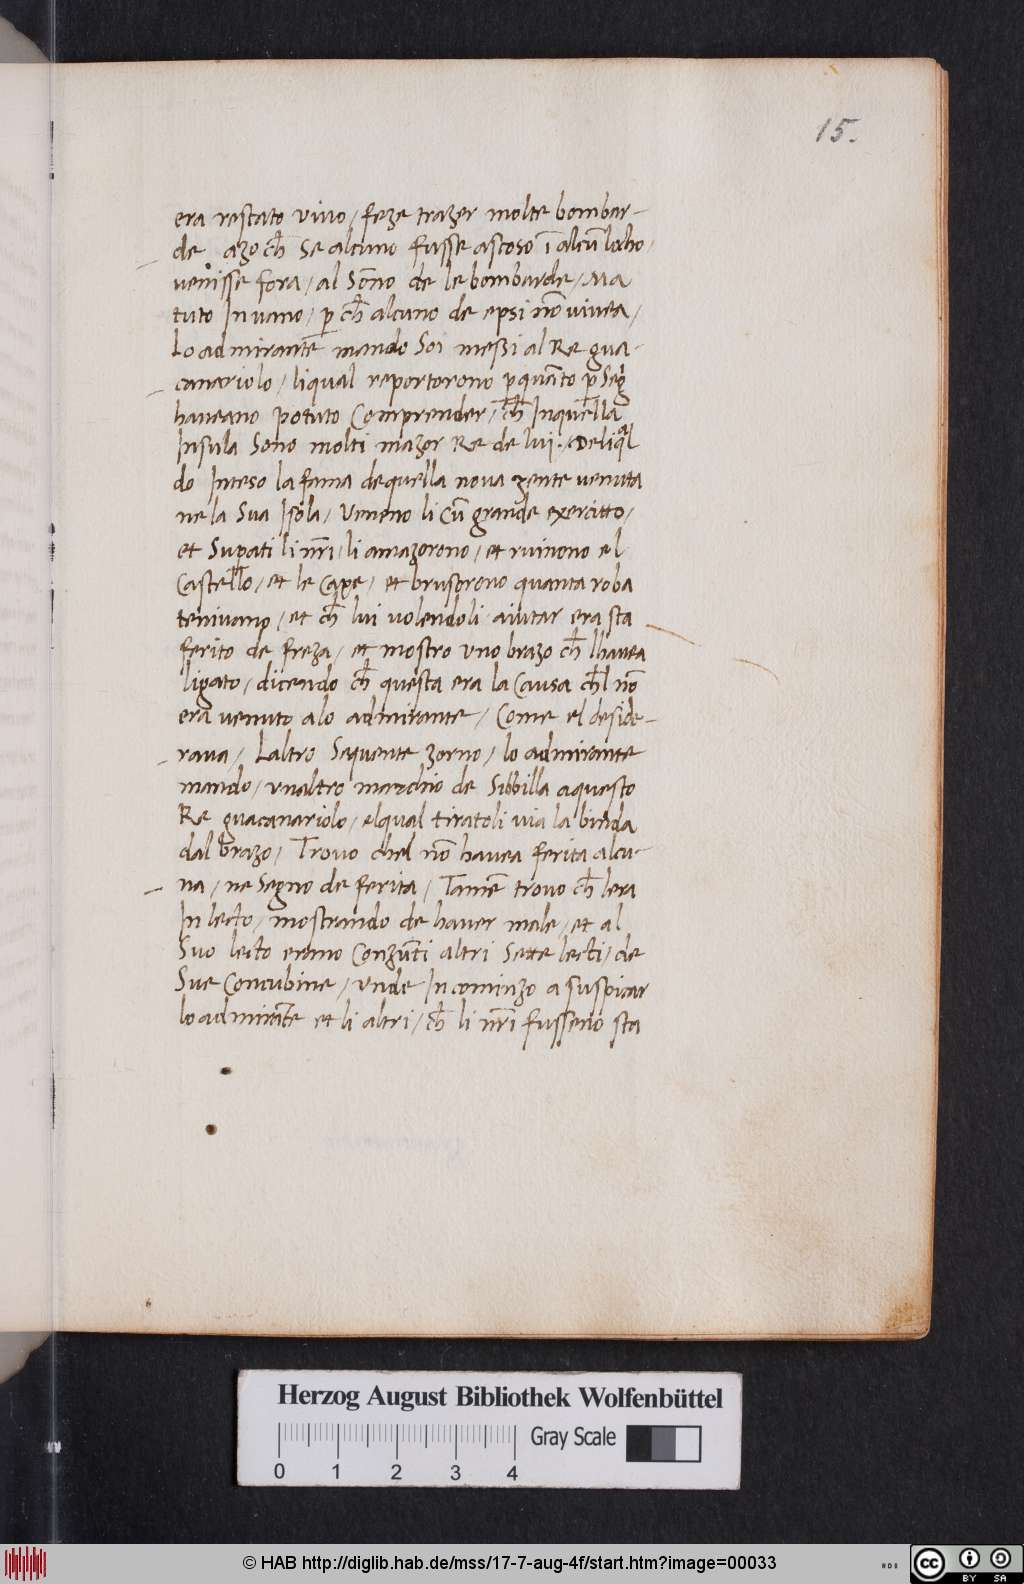 15.
era restato vivo / feze trazer molte bombar-
de azo ch̄ se alcuno fusse ascoso ī alcū locho,
venisse fora / al Sōno de le bombarde / Ma
tuto In vano / p̱ ch̄ alcuno de epsi nōn vivea /
Lo admirante mando Soi meßi al Re gua-
canariolo / li qual reportorono p̱ quāto p̱ Segni
haveano potuto Comprender / ch̄ Inquella
Insula Sono molti mazor Re de lui: De li qual
do Inteso la fama de quella nova zente venuta
ne la Sua Isola / Veneno li Cū grande exercitto /
et Supati li nr̄i / li amazorono / et ruinono el
Castello / et le Caxe / et brusorono quanta roba
tenivano / et ch̄ lui volendoli aiutar era sta
ferito de freza / et mostro uno brazo ch̄ lhavea
ligato / dicendo ch̄ questa era la Causa ch̄l nō
era venuto a lo admirante / Come el deside-
rava / Laltro Sequente zorno / lo admirante
mando / unaltro marchio de Sibilla a questo
Re guacanariolo / el qual tiratoli via la binda
dal brazo / Trovo chel nō havea ferita alcu-
na / ne Segno de ferita / Tamē trovo ch̄ lera
In lecto / mostrando de haver male / et al
Suo lecto erano Conzūti altri Sette lecti / de
Sue Concubine / unde Incominzo a suspicar
lo admirāte et li altri / ch̄ li nr̄i fusseno sta
Herzog August Bibliothek Wolfenbüttel
Gray Scale
0 1 2 3 4
© HAB http://diglib.hab.de/mss/17-7-aug-4f/start.htm?image=00033
cc BY SA